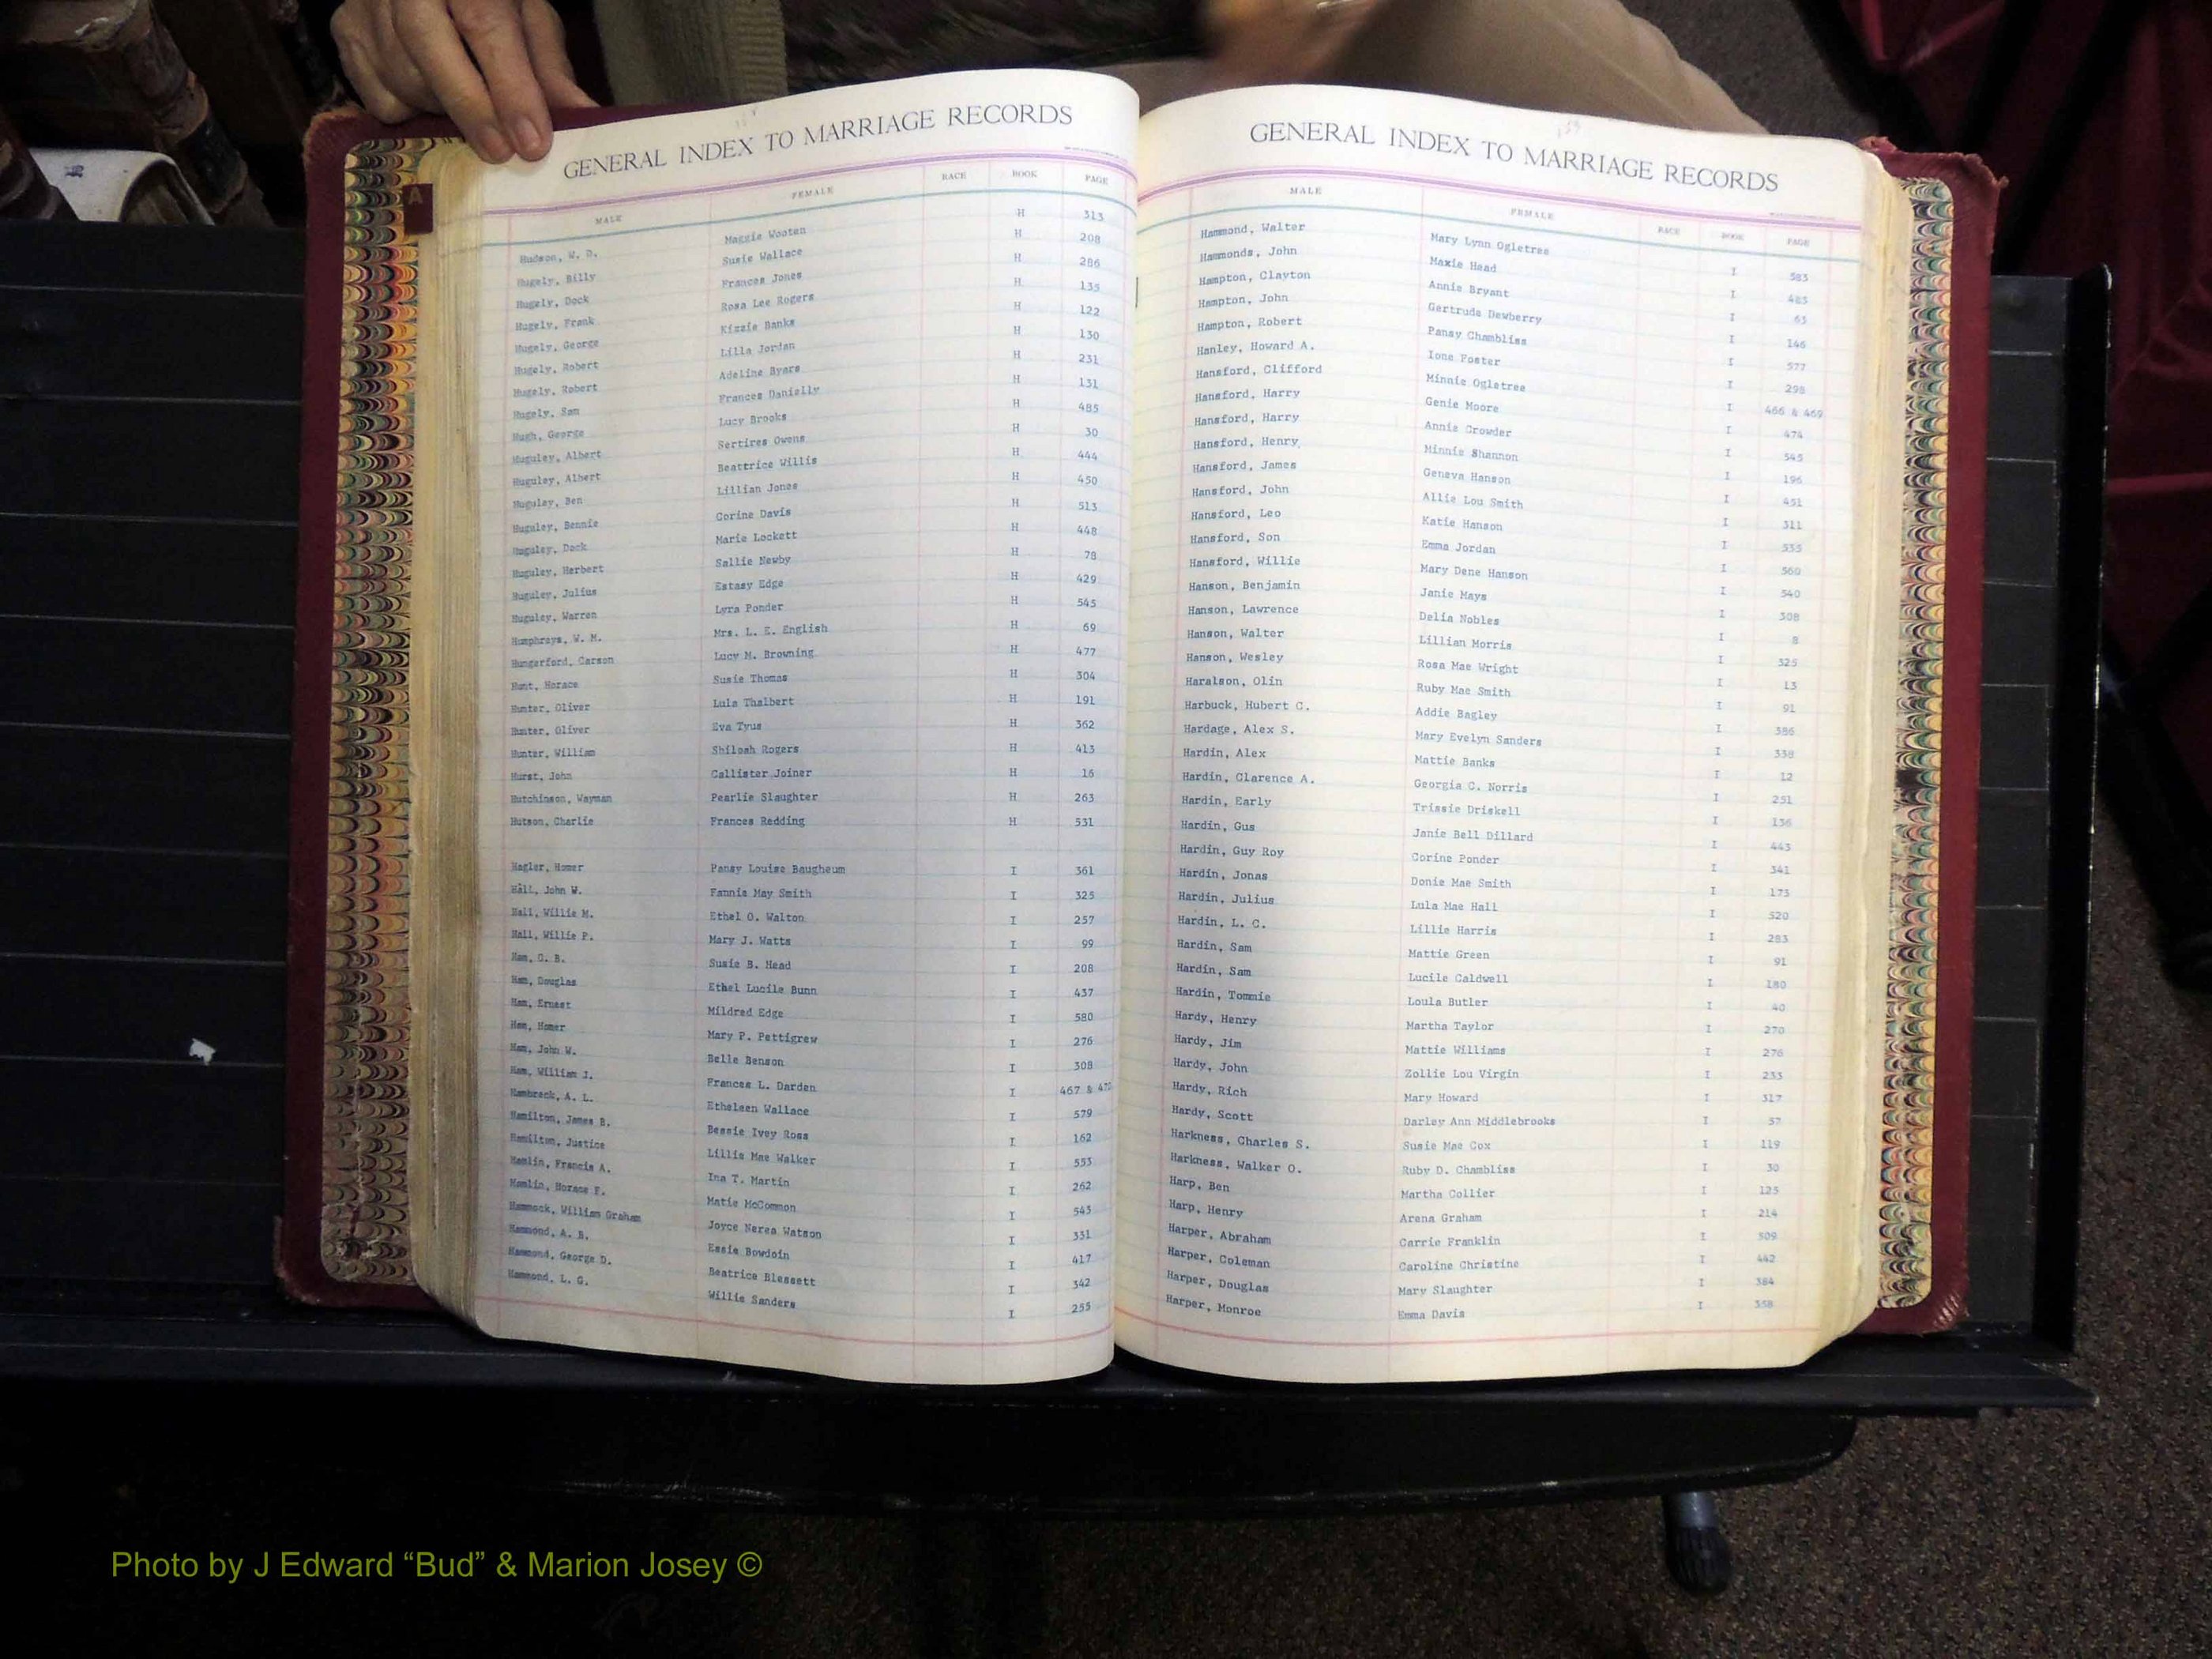 GENERAL INDEX TO MARRIAGE RECORDS
MALE FEMALE RACE BOOK PAGE
Hudson, W. D. Maggie Wooten H 313
Hugely, Billy Susie Wallace H 208
Hugely, Dock Frances Jones H 286
Hugely, Frank Rosa Lee Rogers H 135
Hugely, George Kizzie Banks H 122
Hugely, Robert Lilla Jordan H 130
Hugely, Robert Adeline Byars H 231
Hugely, Sam Frances Danielly H 131
Hugh, George Lucy Brooks H 485
Huguley, Albert Sertires Owens H 30
Huguley, Albert Beattrice Willis H 444
Huguley, Ben Lillian Jones H 450
Huguley, Bennie Corine Davis H 513
Huguley, Dock Marie Lockett H 448
Huguley, Herbert Sallie Newby H 78
Huguley, Julius Estasy Edge H 429
Huguley, Warren Lyra Ponder H 545
Humphreys, W. M. Mrs. L. E. English H 69
Hungerford, Carson Lucy M. Browning H 477
Hunt, Horace Susie Thomas H 304
Hunter, Oliver Lula Thalbert H 191
Hunter, Oliver Eva Tyus H 362
Hunter, William Shiloah Rogers H 413
Hurst, John Callister Joiner H 16
Hutchinson, Wayman Pearlie Slaughter H 263
Hutson, Charlie Frances Redding H 531
Hagler, Homer Pansy Louise Baugheum I 361
Hall, John W. Fannie May Smith I 325
Hall, Willie M. Ethel O. Walton I 257
Hall, Willie P. Mary J. Watts I 99
Ham, O. B. Susie B. Head I 208
Ham, Douglas Ethel Lucile Bunn I 437
Ham, Ernest Mildred Edge I 580
Ham, Homer Mary P. Pettigrew I 276
Ham, John W. Belle Benson I 308
Ham, William J. Frances L. Darden I 467 &
Hambreck, A. L. Etheleen Wallace I 579
Hamilton, James B. Bessie Ivey Ross I 162
Hamilton, Justice Lillie Mae Walker I 553
Hamlin, Francis A. Ina T. Martin I 262
Hamlin, Horace F. Matie McCommon I 543
Hammock, William Graham Joyce Nerea Watson I 331
Hammond, A. B. Essie Bowdoin I 417
Hammond, George D. Beatrice Blessett I 342
Hammond, L. G. Willie Sanders I 255
GENERAL INDEX TO MARRIAGE RECORDS
MALE FEMALE RACE BOOK PAGE
Hammond, Walter Mary Lynn Ogletree I 583
Hammonds, John Maxie Head I 485
Hampton, Clayton Annie Bryant I 63
Hampton, John Gertrude Dewberry I 146
Hampton, Robert Pansy Chambliss I 577
Hanley, Howard A. Ione Foster I 298
Hansford, Clifford Minnie Ogletree I 466 & 469
Hansford, Harry Genie Moore I 474
Hansford, Harry Annie Crowder I 545
Hansford, Henry Minnie Shannon I 196
Hansford, James Geneva Hanson I 451
Hansford, John Allie Lou Smith I 311
Hansford, Leo Katie Hanson I 535
Hansford, Son Emma Jordan I 560
Hansford, Willie Mary Dene Hanson I 540
Hanson, Benjamin Janie Mays I 308
Hanson, Lawrence Delia Nobles I 8
Hanson, Walter Lillian Morris I 325
Hanson, Wesley Rosa Mae Wright I 13
Haralson, Olin Ruby Mae Smith I 91
Harbuck, Hubert C. Addie Bagley I 386
Hardage, Alex S. Mary Evelyn Sanders I 338
Hardin, Alex Mattie Banks I 12
Hardin, Clarence A. Georgia C. Norris I 251
Hardin, Early Trissie Driskell I 136
Hardin, Gus Janie Bell Dillard I 443
Hardin, Guy Roy Corine Ponder I 341
Hardin, Jonas Donie Mae Smith I 173
Hardin, Julius Lula Mae Hall I 520
Hardin, L. C. Lillie Harris I 283
Hardin, Sam Mattie Green I 91
Hardin, Sam Lucile Caldwell I 180
Hardin, Tommie Loula Butler I 40
Hardy, Henry Martha Taylor I 270
Hardy, Jim Mattie Williams I 276
Hardy, John Zollie Lou Virgin I 233
Hardy, Rich Mary Howard I 317
Hardy, Scott Darley Ann Middlebrooks I 37
Harkness, Charles S. Susie Mae Cox I 119
Harkness, Walker O. Ruby D. Chambliss I 30
Harp, Ben Martha Collier I 125
Harp, Henry Arena Graham I 214
Harper, Abraham Carrie Franklin I 509
Harper, Coleman Caroline Christine I 442
Harper, Douglas Mary Slaughter I 384
Harper, Monroe Emma Davis I 358
A
Photo by J Edward “Bud” & Marion Josey ©